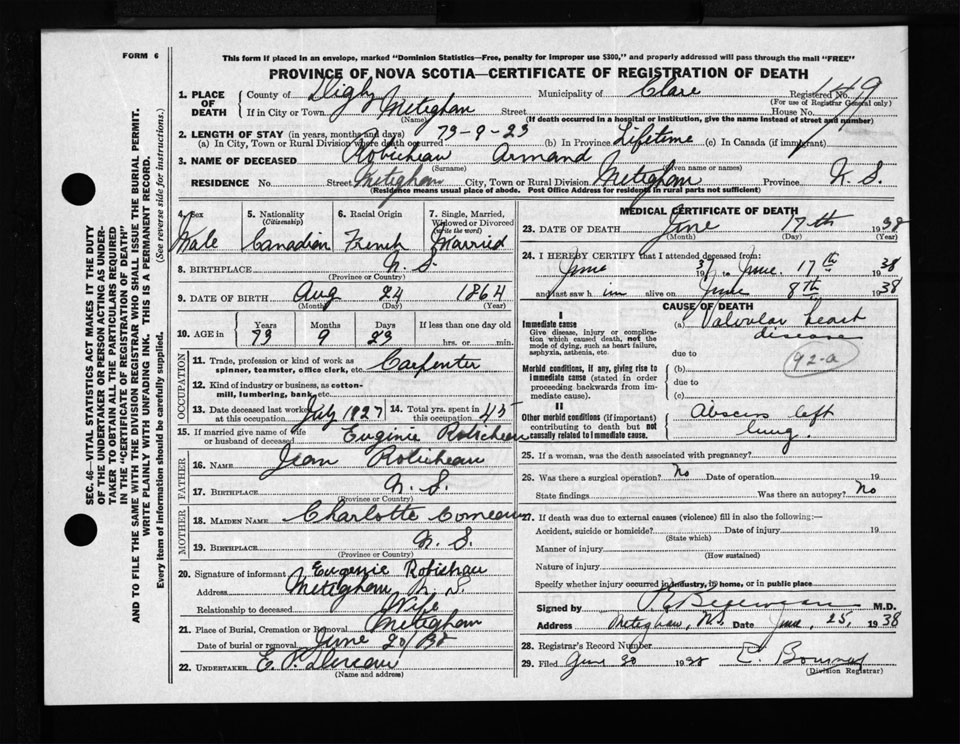 FORM 6
This form if placed in an envelope, marked "Dominion Statistics—Free, penalty for improper use $300," and properly addressed will pass through the mail "FREE"
PROVINCE OF NOVA SCOTIA—CERTIFICATE OF REGISTRATION OF DEATH
SEC. 46—VITAL STATISTICS ACT MAKES IT THE DUTY
OF THE UNDERTAKER OR PERSON ACTING AS UNDER-
TAKER TO OBTAIN ALL THE PARTICULARS REQUIRED
IN THE "CERTIFICATE OF REGISTRATION OF DEATH"
AND TO FILE THE SAME WITH THE DIVISION REGISTRAR WHO SHALL ISSUE THE BURIAL PERMIT.
WRITE PLAINLY WITH UNFADING INK. THIS IS A PERMANENT RECORD.
Every item of information should be carefully supplied. (See reverse side for instructions.)
1. PLACE OF DEATH County of Digby Municipality of Clare Registered No. 149
(For use of Registrar General only)
If in City or Town Meteghan Street House No.
(Name) (If death occurred in a hospital or institution, give the name instead of street and number)
2. LENGTH OF STAY (in years, months and days) 73-9-23
(a) In City, Town or Rural Division where death occurred (b) In Province Lifetime (c) In Canada (if immigrant)
3. NAME OF DECEASED Robicheau Armand
(Surname) (Given name or names)
RESIDENCE No. Street Meteghan City, Town or Rural Division Meteghan Province N. S.
(Residence means usual place of abode. Post Office Address for residents in rural parts not sufficient)
4. Sex 5. Nationality (Citizenship) 6. Racial Origin 7. Single, Married, Widowed or Divorced (write the word)
Male Canadian French Married
8. BIRTHPLACE N. S.
(Province or Country)
9. DATE OF BIRTH Aug 24 1864
(Month) (Day) (Year)
10. AGE in Years Months Days If less than one day old
73 9 23 hrs. or min.
OCCUPATION
11. Trade, profession or kind of work as spinner, teamster, office clerk, etc. Carpenter
12. Kind of industry or business, as cotton-mill, lumbering, bank, etc.
13. Date deceased last worked at this occupation July 1927 14. Total yrs. spent in this occupation 45
15. If married give name of wife or husband of deceased Euginie Robicheau
FATHER
16. NAME Jean Robicheau
17. BIRTHPLACE N. S.
(Province or Country)
MOTHER
18. MAIDEN NAME Charlotte Comeau
19. BIRTHPLACE N. S.
(Province or Country)
20. Signature of informant Eugenie Robichau
Address Meteghan N. S.
Relationship to deceased Wife
21. Place of Burial, Cremation or Removal Meteghan
Date of burial or removal June 20/38
22. UNDERTAKER E. P.
(Name and address)
MEDICAL CERTIFICATE OF DEATH
23. DATE OF DEATH June 17th 1938
(Month) (Day) (Year)
24. I HEREBY CERTIFY that I attended deceased from:
June to June 17th 1938
and last saw him alive on June 8th 1938
CAUSE OF DEATH
I
Immediate cause (a) Valvular heart
Give disease, injury or complication which caused death, not the mode of dying, such as heart failure, asphyxia, asthenia, etc. disease
due to
92-a
Morbid conditions, if any, giving rise to immediate cause (stated in order proceeding backwards from immediate cause). (b)
due to
(c)
II
Other morbid conditions (if important) contributing to death but not causally related to immediate cause. Abscess left
lung.
25. If a woman, was the death associated with pregnancy?
26. Was there a surgical operation? No Date of operation 19
State findings Was there an autopsy? No
27. If death was due to external causes (violence) fill in also the following:—
Accident, suicide or homicide? Date of injury 19
(State which)
Manner of injury
(How sustained)
Nature of injury
Specify whether injury occurred in industry, in home, or in public place
Signed by M.D.
Address Meteghan, N.S. Date June, 25, 1938
28. Registrar's Record Number
29. Filed June 30 1938
(Division Registrar)